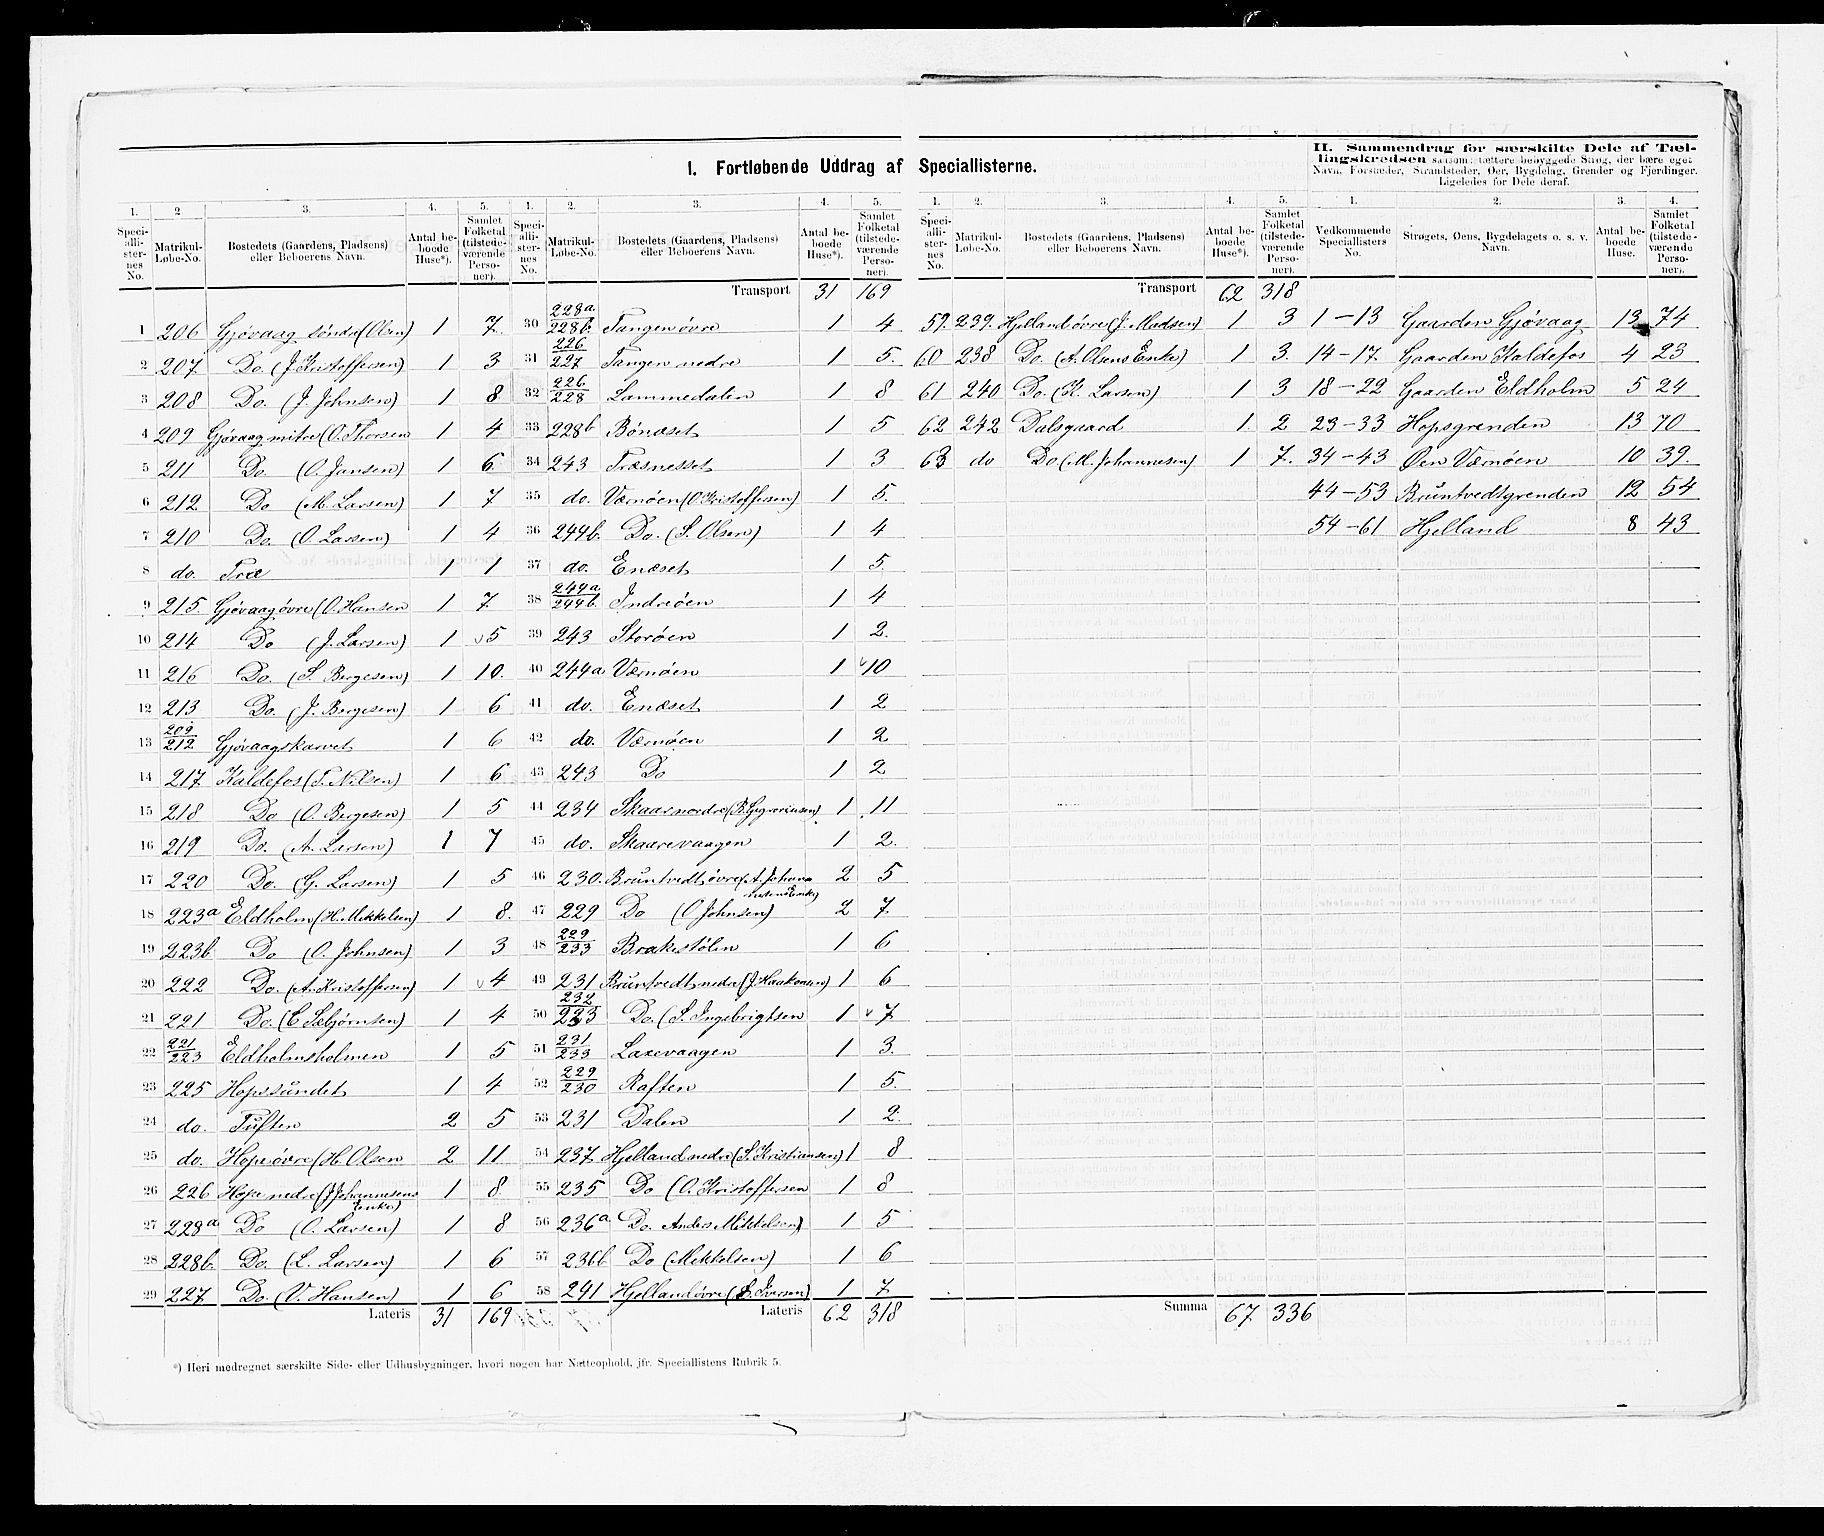 I. Fortløbende Uddrag af Speciallisterne.
1. Speciallisternes No. | 2 Matrikul-Løbe-No. | 3. Bostedets (Gaardens, Pladsens) eller Beboerens Navn. | 4. Antal beboede Huse*). | 5. Samlet Folketal (tilstedeværende Personer).
1 206 Gjøvaag søndre (Olsen) 1 7.
2 207 Do. (J. Kristoffersen) 1 3
3 208 Do. (J. Johnsen) 1 8
4 209 Gjøvaag mitre (O. Thorsen 1 4
5 211 Do. (O. Jansen) 1 6
6 212 Do (M. Larsen) 1 7
7 210 Do. (O. Larsen) 1 4
8 do. Træ 1 1
9 215. Gjøvaag øvre (O. Hansen 1 7.
10 214 Do (J. Larsen) 1 5
11 216 Do. (S. Bergesen) 1 10.
12 213 Do. (J. Bergesen) 1 6
13 209/212 Gjøvaagskarvet 1 6
14 217 Kaldefos (T. Nilsen) 1 6
15 218 Do (O. Bergesen) 1 5
16 219 Do. (A. Larsen) 1 7
17 220 Do. (G. Larsen) 1 5
18 223a Eldholm (H. Mikkelsen) 1 8.
19 223b Do (O. Johnsen) 1 3
20 222 Do. (A. Kristoffersen) 1 4
21 221 Do. (C Sæbjørnsen) 1 4
22 221/223 Eldholmsholmen 1 5
23 225 Hopssundet 1 4
24 do. Tuften 2 5
25 do. Hope øvre (H. Olsen 2 11
26 226 Hope nedre (J Johannesens Enke) 1 8
27 228a Do (O. Larsen) 1 8
28 228b. Do. (L. Larsen) 1 6
29 227 Do. (V. Hansen) 1 6
Lateris 31 169
1. Speciallisternes No. | 2. Matrikul-Løbe-No. | 3. Bostedets (Gaardens, Pladsens) eller Beboerens Navn. | 4. Antal beboede Huse*). | 5. Samlet Folketal (tilstedeværende Personer).
Transport 31 169
30 228a./228b. Tangen øvre 1 4
31 226/227 Tangen nedre 1 5.
32 226/228 Lammedalen 1 8
33 228b Bönæset 1 5
34 243 Træsnesset 1 3
35 do. Værnøen (O. Kristoffersen) 1 5.
36 244b. Do. (S. Olsen) 1 4
37 do. Enæset 1 5.
38 244a/244b. Indreøen 1 4
39 243 Storøen 1 2.
40 244a Værnøen 1 10
41 do. Enæset 1 2
42 do. Værnøen 1 2
43 243 Do 1 2
44 234 Skaar nordre (B. Gregoriusen) 1 11
45 do. Skaarevaagen 1 2.
46 230. Bruntvedt øvre (A. Johannesens Enke) 2 5
47 229 Do (O Johnsen) 2 7.
48 229/233 Brakestølen 1 6
49 231 Bruntvedt nedre (J. Haakonsen) 1 6
50 232/233 Do. (S. Ingebrigtsen 1 7
51 231/233 Laxevaagen 1 3.
52 229/230 Raften 1 5.
53 231 Dalen 1 2.
54 237 Hjelland nedre (S. Kristiansen) 1 8
55 235 Do (O. Kristoffersen 1 8
56 236a Do. Anders Mikkelsen) 1 5
57 236b Do (Mikkelsen) 1 6
58 241 Hjelland øvre (S. Iversen) 1 7.
Lateris 62 318
1. Speciallisternes No. | 2. Matrikul-Løbe-No. | 3. Bostedets (Gaardens, Pladsens) eller Beboerens Navn. | 4. Antal beboede Huse*). | 5. Samlet Folketal (tilstedeværende Personer).
Transport 62 318
59. 239. Hjelland øvre (J. Madsen) 1 3
60 238 Do. (A. Olsens Enke) 1 3.
61 240 Do. (K. Larsen) 1 3
62 242 Dalsgaard 1. 2
63 do Do (M. Johannesen) 1 7.
Summa 67 336
II. Sammendrag for særskilte Dele af Tællingskredsen saasom: tættere bebyggede Strøg, der bære eget Navn, Forstæder, Strandsteder, Øer, Bygdelag, Grender og Fjerdinger. Ligeledes for Dele deraf.
1. Vedkommende Speciallisters No. | 2. Strøgets, Øens, Bygdelagets o. s. v. Navn. | 3. Antal beboede Huse. | 4. Samlet Folketal (tilstedeværende Personer).
1-13 Gaarden Gjøvaag 13 74
14-17. Gaarden Kaldefos 4 23
18-22 Gaarden Eldholm 5 24
23-33 Hopsgrenden 13 70
34-43 Øen Værnøen 10 39.
44-53 Bruntvedtgrenden 12 54
54-61 Hjelland 8 43
*) Heri medregnet særskilte Side- eller Udhusbygninger, hvori nogen har Natteophold, jfr. Speciallistens Rubrik 5.